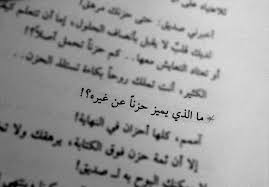 أخبرني صديق: حتى حزنك مرهق!
لديك قلبٌ لا يقبل بأنصاف الحلول، إما أن تتعلم
أو تعتاد التعايش معها.. كم حزناً تحمل أصلاً؟!
الكثير، أنت تملك روحاً بكاءة تمتلك الحزن..
* ما الذي يميز حزناً عن غيره؟!
أممم، كلها أحزان في النهاية!
إلا أن ثمة حزن فوق الكتابة، يرهقك ولا
يمكنك البوح به لـ صديق!